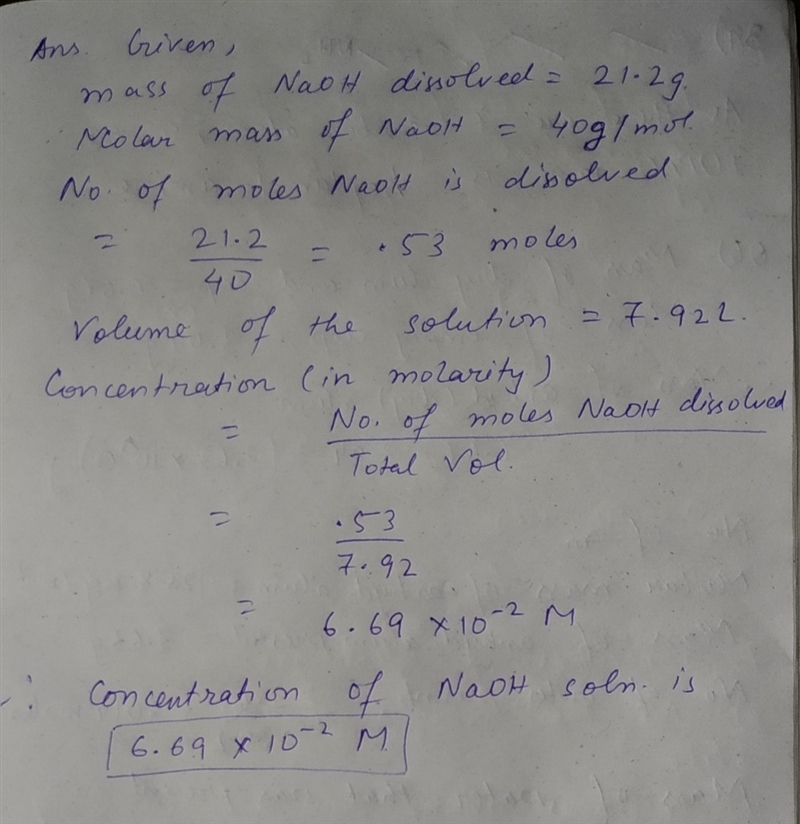 Ans. Given,
mass of NaOH dissolved = 21.2g.
Molar mass of NaOH = 40g/mol.
No. of moles NaOH is dissolved
= 21.2/40 = .53 moles
Volume of the solution = 7.92L.
Concentration (in molarity)
= No. of moles NaOH dissolved
Total Vol.
= .53
7.92
= 6.69 × 10⁻² M
∴ Concentration of NaOH soln. is
6.69 × 10⁻² M